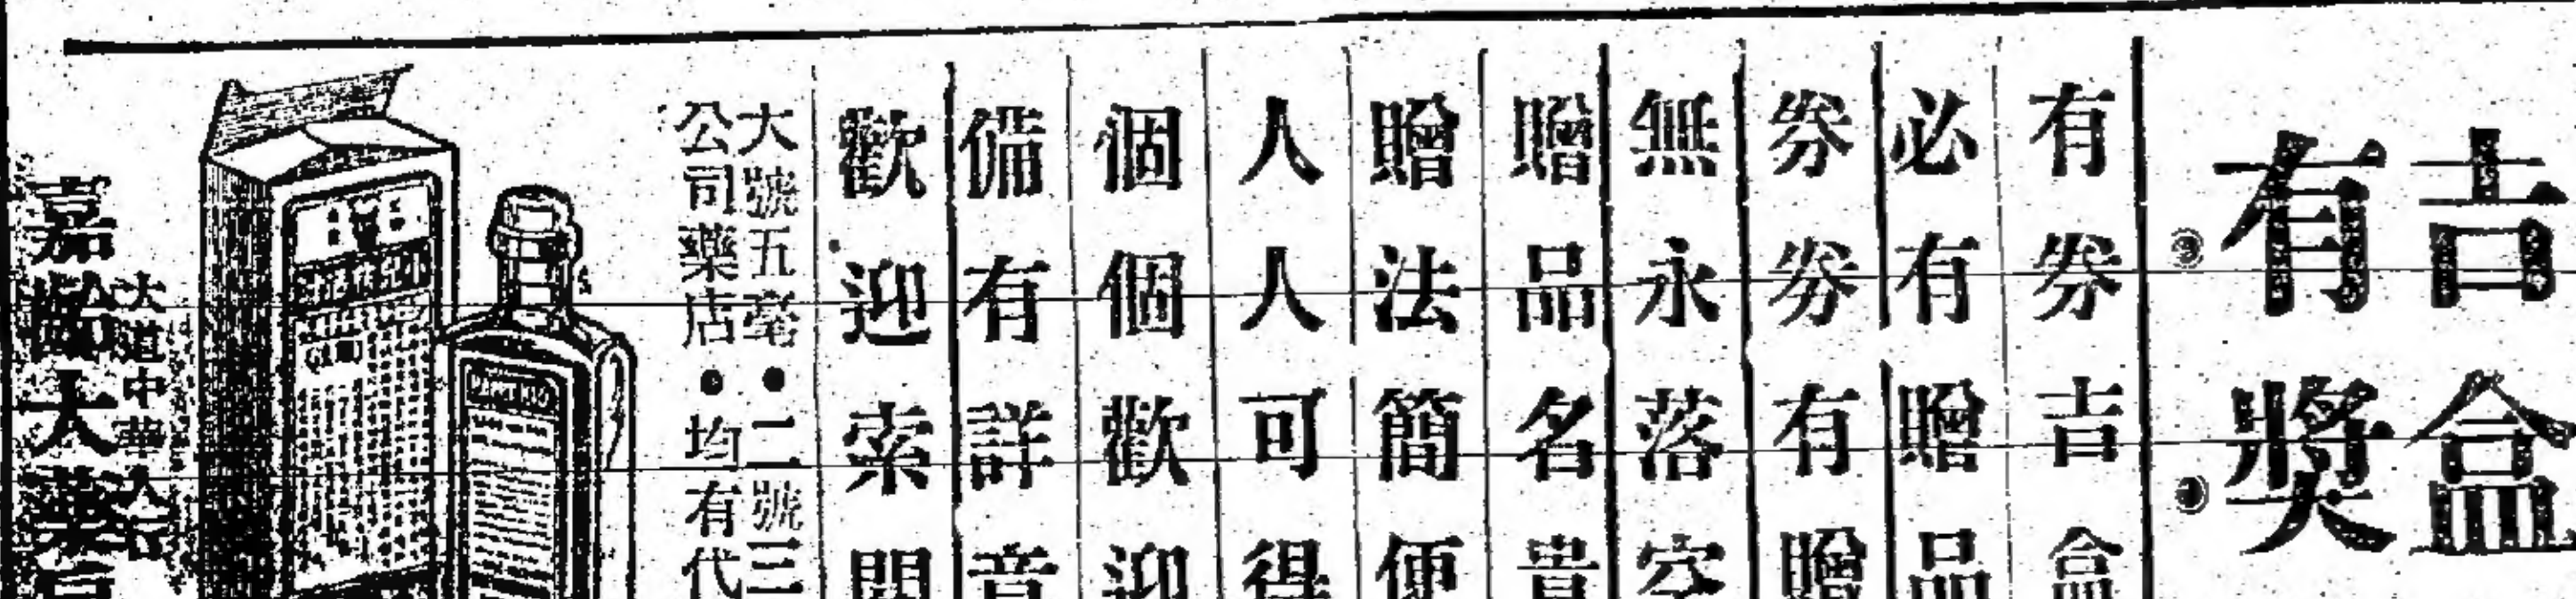 吉盒
有獎
有券吉盒
必有贈品
券券有贈
無永落空
贈品名貴
贈法簡便
人人可得
個個歡迎
備有詳章
歡迎索閱
大號五毫•二號三
公司藥店•均有代
大道中華人行
嘉齡大藥房